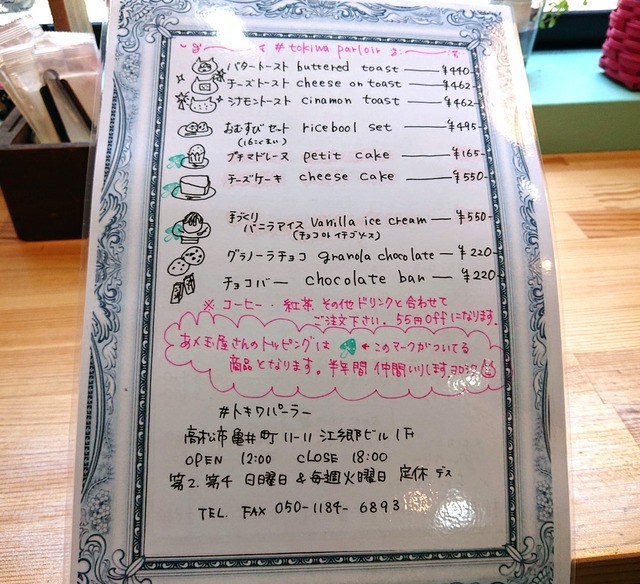 # tokiwa parloir
バタートースト buttered toast ¥440-
チーズトースト cheese on toast ¥462-
シナモントースト cinamon toast ¥462-
おむすびセート ricebool set ¥495-
プチマドレーヌ petit cake ¥165-
チーズケーキ cheese cake ¥550-
手づくり
バニラアイス vanilla ice cream ¥550-
(チョコorイチゴソース)
グラノーラチョコ granola chocolate ¥220-
チョコバー chocolate bar ¥220
※ コーヒー・紅茶 その他ドリンクと合わせて
ご注文下さい。55円offになります。
あめ玉屋さんのトッピングは ←このマークがついてる
商品となります。半年間 仲間いりします
#トキワパーラー
高松市亀井町11-11 江郷ビル1F
OPEN 12:00 CLOSE 18:00
第2.第4 日曜日&毎週火曜日 定休デス
TEL. FAX 050-1184-6893